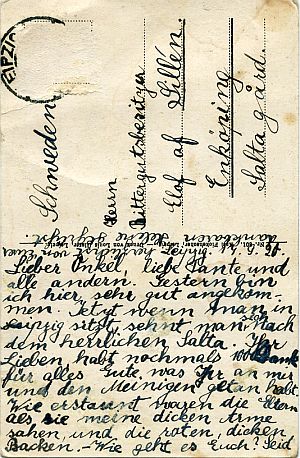 LEIPZIG
Schweden
Herrn
Rittergutsbesitzer
Elof af Gillén.
Enköping
Salta gård.
Leipzig, 14.6.20
Lieber Onkel, liebe Tante und
alle andern. Gestern bin
ich hier sehr gut angekom-
men. Jetzt wenn man in
Leipzig sitzt, sehnt man nach
dem herrlichen Salta. Ihr
Lieben habt nochmals 1000 Dank
für alles Gute, was Ihr an mir
und den Meinigen getan habt.
Wie erstaunt waren die Eltern
als sie meine dicken Arme
sahen, und die roten, dicken
Backen. - Wie geht es Euch? Seid
herzlichst von Eurer
dankbaren